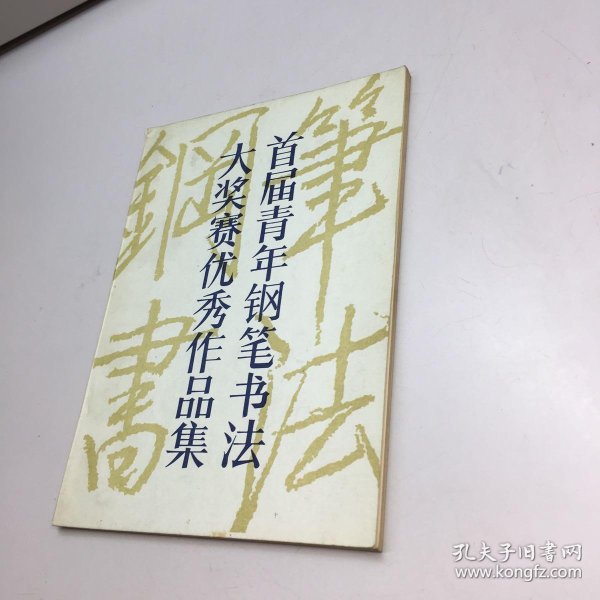 首届青年钢笔书法
大奖赛优秀作品集
鋼筆
書法
孔夫子旧書网
www.kongfz.com